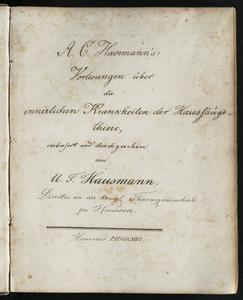 A. C. Havemann's
Vorlesungen über
die
innerlichen Krankheiten der Haussäuge-
thiere,
und durchgesehen
von
U. F. Hausmann.
Director an der königl. Thierarzneischule
zu Hannover.
Hannover